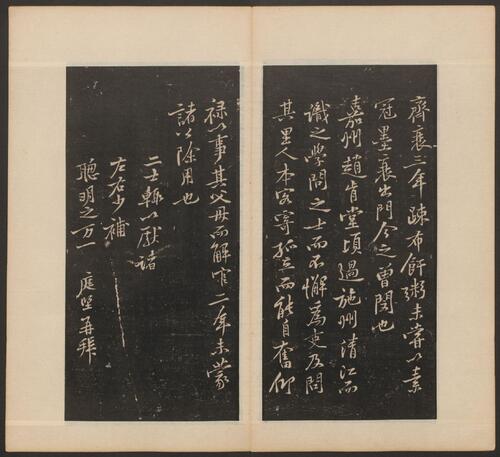 齊衰三年疎布飦粥未嘗以素
冠墨衰出門今之曾閔也
嘉州趙肯堂頃過施州清江而
識之學問之士而不懈為吏及問
其里人本客寄孤立而能自奮仰
禄以事其父母而解官二年未蒙
諸公除用也
二士輒以獻諸
左右少補
聰明之万一　庭堅再拜